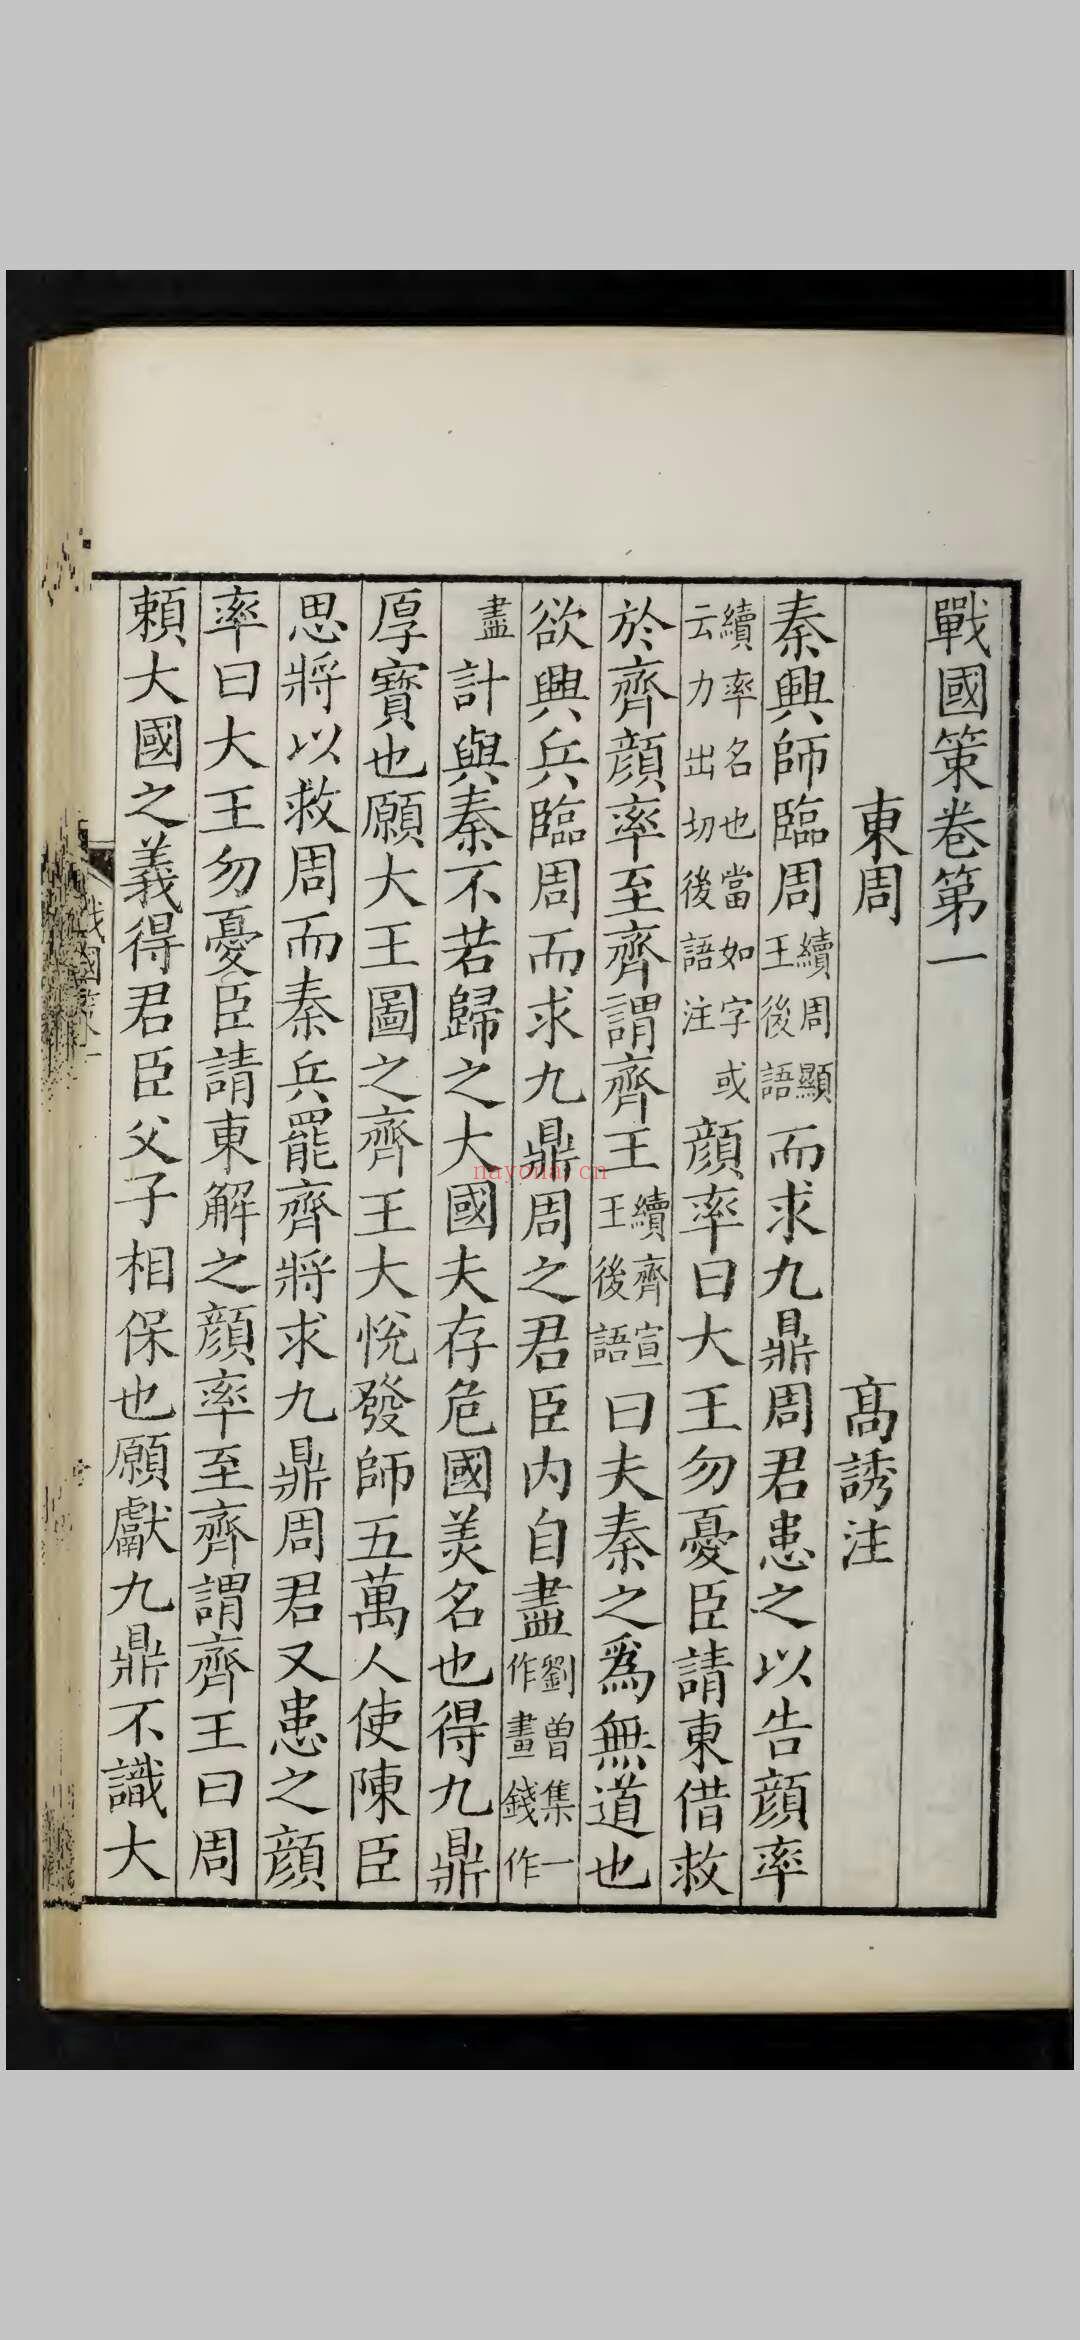 戰國策卷第一
東周
高誘注
秦興師臨周續周顯王後語而求九鼎周君患之以告顔率
續率名也當如字或云力出切後語注顔率曰大王勿憂臣請東借救
於齊顔率至齊謂齊王續齊宣王後語曰夫秦之爲無道也
欲興兵臨周而求九鼎周之君臣内自盡劉曽集一作畫錢作
盡計與秦不若歸之大國夫存危國美名也得九鼎
厚寶也願大王圖之齊王大悅發師五萬人使陳臣
思將以救周而秦兵罷齊將求九鼎周君又患之顔
率曰大王勿憂臣請東解之顔率至齊謂齊王曰周
頼大國之義得君臣父子相保也願獻九鼎不識大
戰國策一
nayona.cn